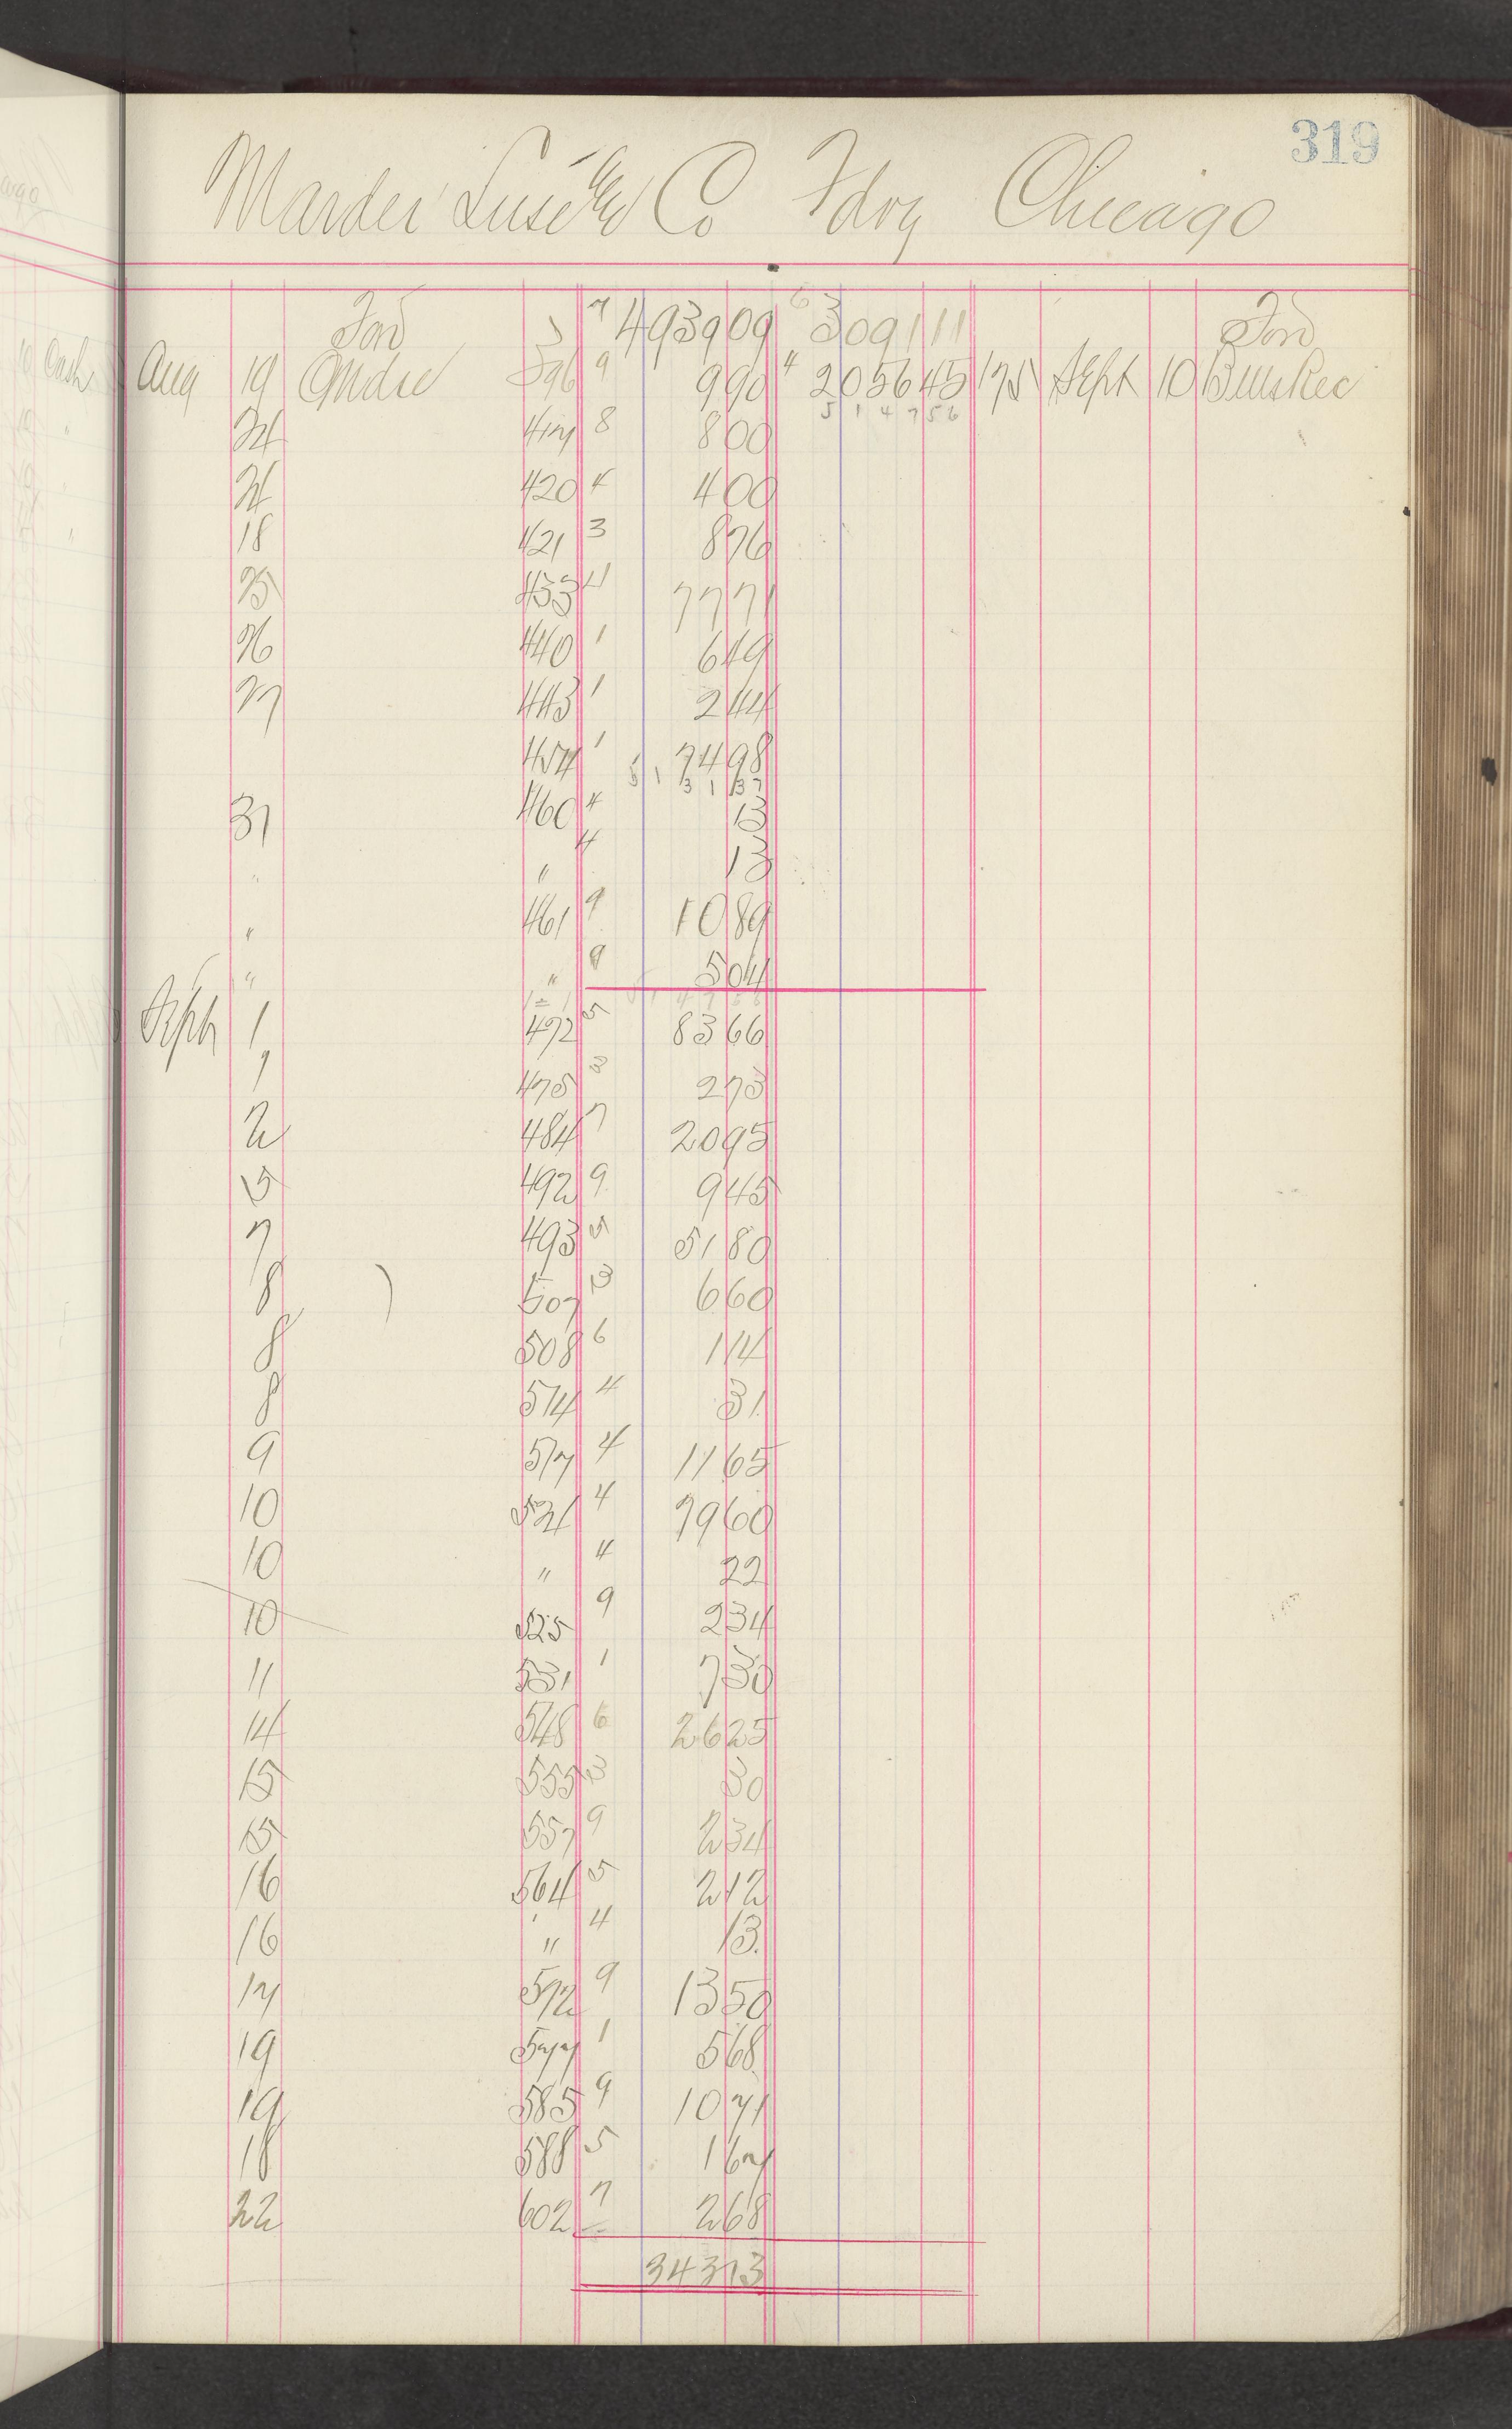 319
Marder Luse & Co Fdry Chicago
Ford 7 493909 6 309111 Ford
Aug 19 Mdse 396 9 990 4 205645 175 Sept 10 Bills Rec
5 1 4 7 5 6
24 417 8 800
24 420 4 400
18 421 3 876
25 433 4 7771
26 440 1 649
27 443 1 244
454 1 7498
5 1 3 1 3 7
31 460 4 13
" " 4 13
" 461 9 1089
" " 9 504
5 1 4 7 5 6
Sept 1 472 5 8366
1 475 3 273
2 484 7 2095
5 492 9 945
7 493 5 5180
8 507 3 660
8 508 6 114
8 514 4 31
9 517 4 1165
10 521 4 7960
10 " 4 22
10 525 9 234
11 531 1 730
14 548 6 2625
15 555 3 30
15 557 9 234
16 564 5 212
16 " 4 13
17 572 9 1350
19 577 1 568
19 585 9 1071
18 588 5 167
22 602 7 268
34313